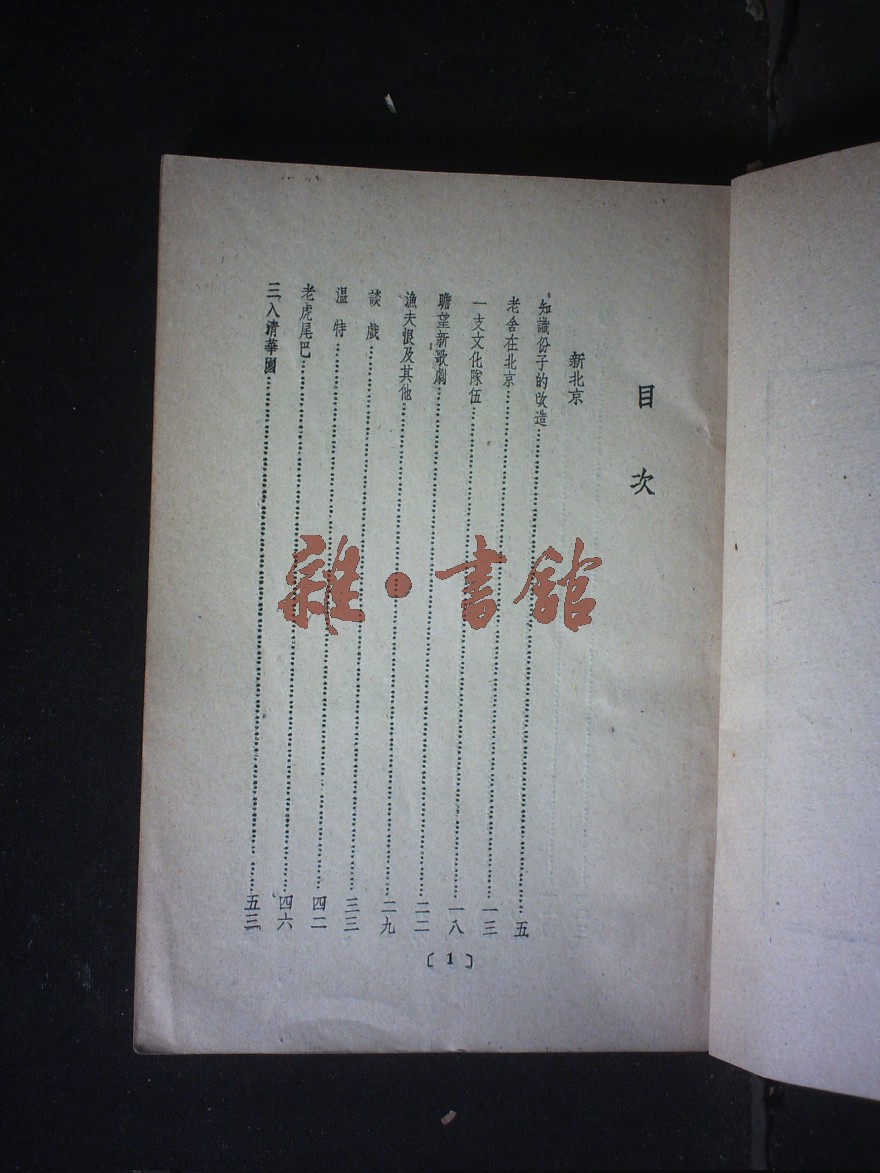 目次
新北京
知識份子的改造……五
老舍在北京……一三
一支文化隊伍……一八
瞻望新歌劇……二二
漁夫恨及其他……二九
談戲……三三
溫特……四二
老虎尾巴……四六
三入清華園……五三
〔1〕
雜·書館